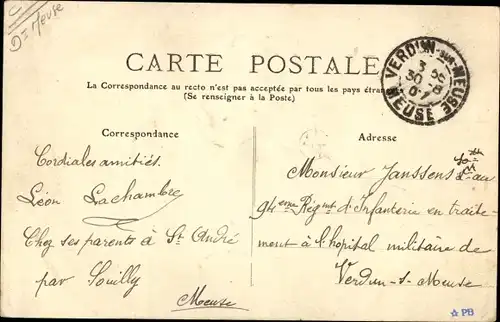 Dt Meuse
CARTE POSTALE
La Correspondance au recto n'est pas acceptée par tous les pays étran
(Se renseigner à la Poste)
VERDUN-SUR-MEUSE
3 56
30 -8
07
MEUSE
Correspondance
Cordiales amitiés.
Léon Lachambre
Chez ses parents à St André
par Souilly
Meuse
Adresse
Monsieur Janssens
94eme Régmt d'Infanterie en traite
ment à l'hopital militaire de
Verdun-s-Meuse
☆ PB